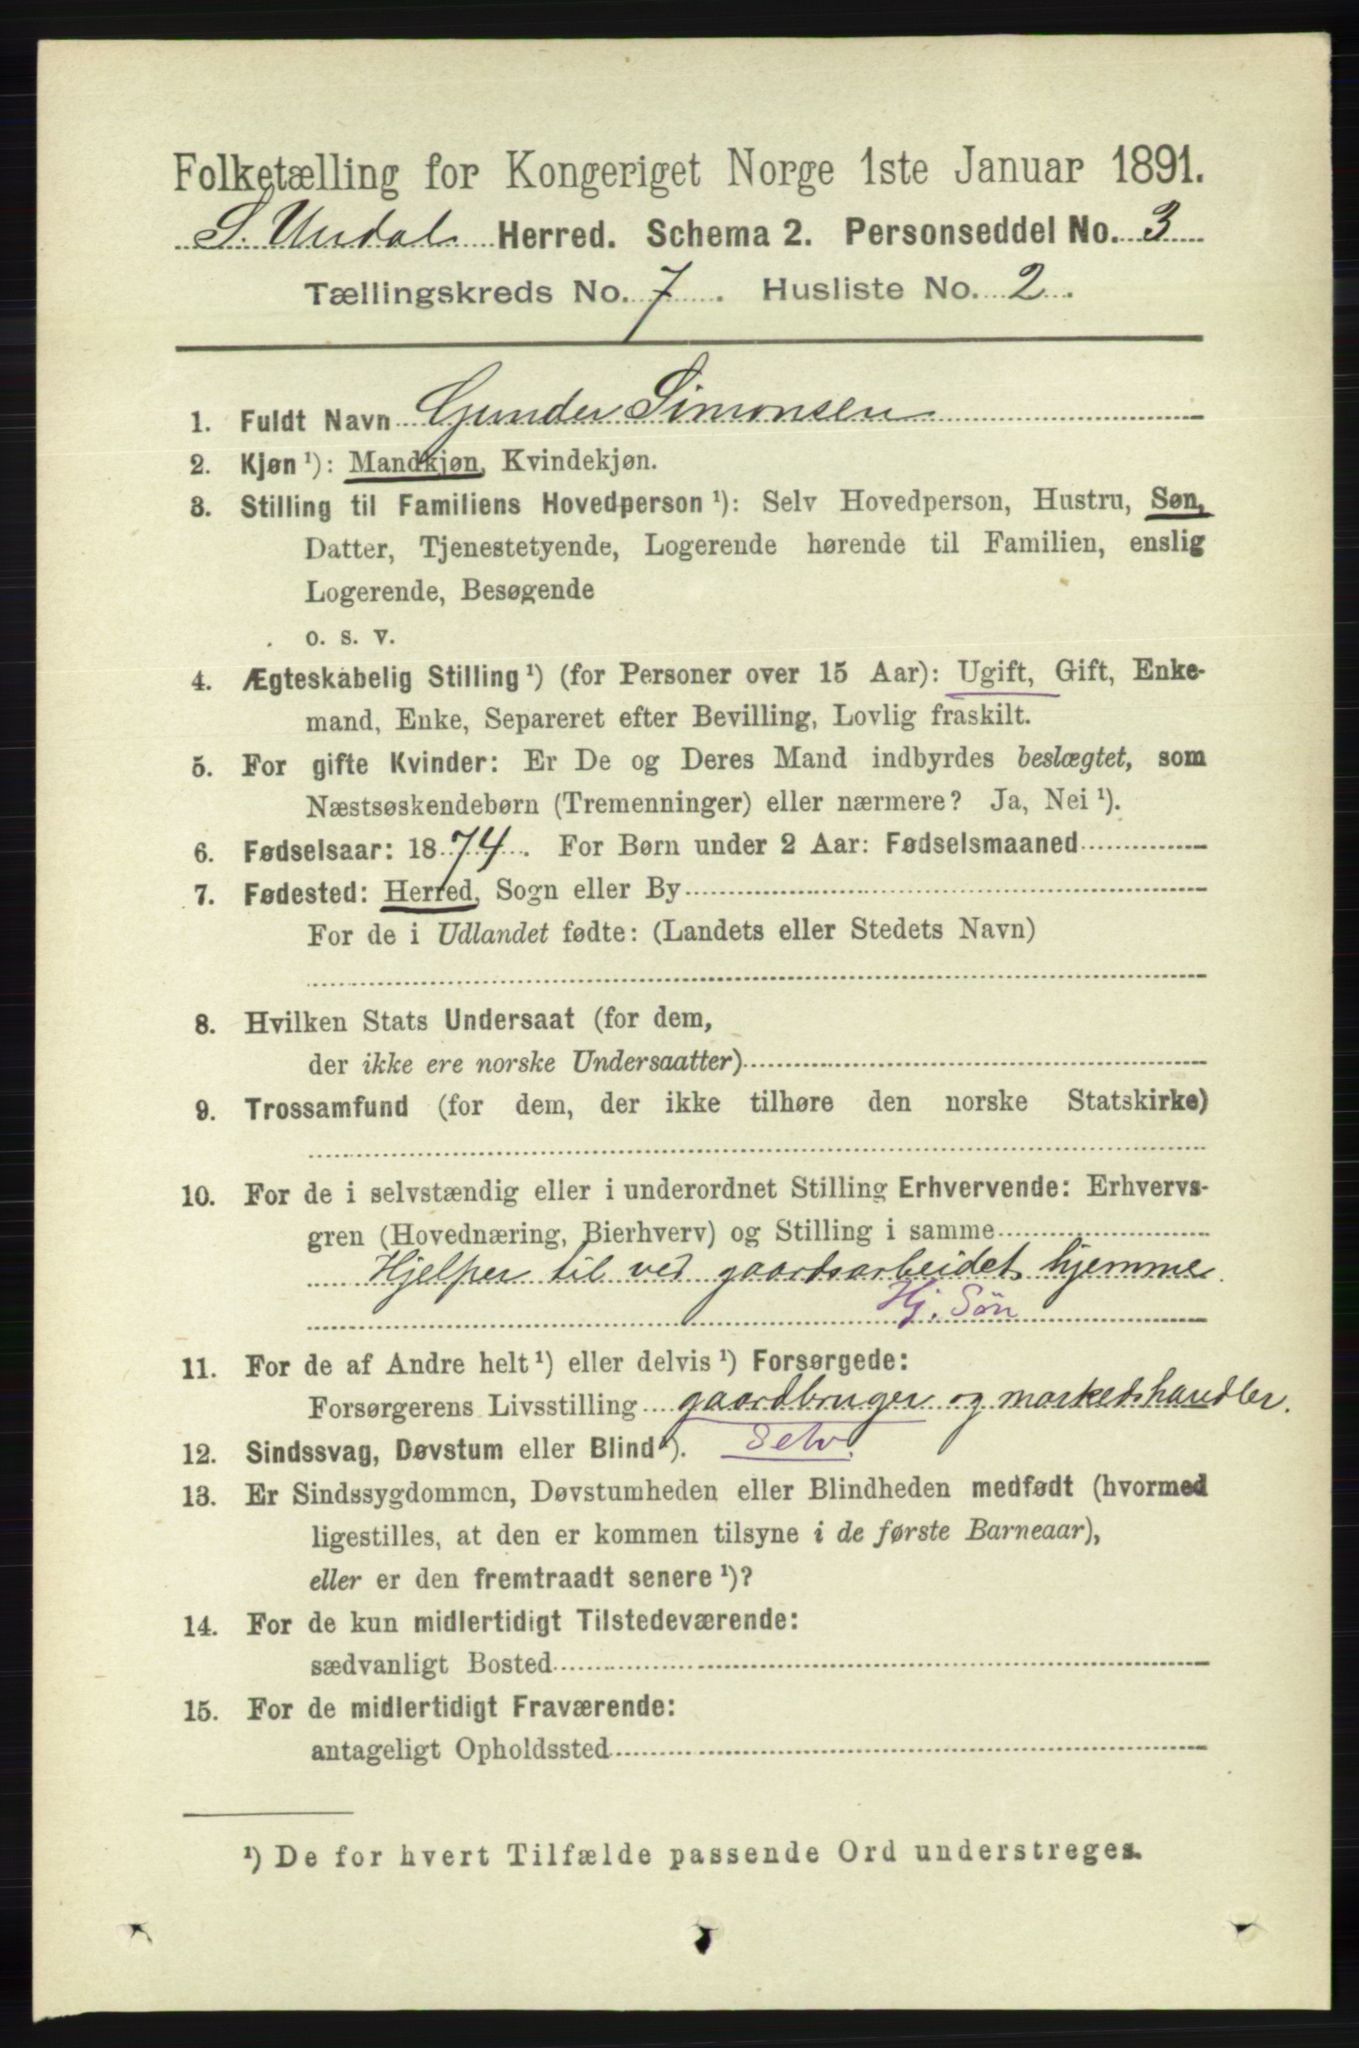 Folketælling for Kongeriget Norge 1ste Januar 1891.
S. Undal Herred. Schema 2. Personseddel No. 3
Tællingskreds No. 7. Husliste No. 2.
1. Fuldt Navn Gunder Simonsen
2. Kjøn ¹): Mandkjøn, Kvindekjøn.
3. Stilling til Familiens Hovedperson ¹): Selv Hovedperson, Hustru, Søn,
Datter, Tjenestetyende, Logerende hørende til Familien, enslig
Logerende, Besøgende
o. s. v.
4. Ægteskabelig Stilling ¹) (for Personer over 15 Aar): Ugift, Gift, Enke-
mand, Enke, Separeret efter Bevilling, Lovlig fraskilt.
5. For gifte Kvinder: Er De og Deres Mand indbyrdes beslægtet, som
Næstsøskendebørn (Tremenninger) eller nærmere? Ja, Nei ¹).
6. Fødselsaar: 1874. For Børn under 2 Aar: Fødselsmaaned
7. Fødested: Herred, Sogn eller By
For de i Udlandet fødte: (Landets eller Stedets Navn)
8. Hvilken Stats Undersaat (for dem,
der ikke ere norske Undersaatter)
9. Trossamfund (for dem, der ikke tilhøre den norske Statskirke)
10. For de i selvstændig eller i underordnet Stilling Erhvervende: Erhvervs-
gren (Hovednæring, Bierhverv) og Stilling i samme
Hjelper til ved gaardsarbeidet hjemme
Hj. Søn
11. For de af Andre helt ¹) eller delvis ¹) Forsørgede:
Forsørgerens Livsstilling gaardbruger og markedshandler.
12. Sindssvag, Døvstum eller Blind ¹). Selv.
13. Er Sindssygdommen, Døvstumheden eller Blindheden medfødt (hvormed
ligestilles, at den er kommen tilsyne i de første Barneaar),
eller er den fremtraadt senere ¹)?
14. For de kun midlertidigt Tilstedeværende:
sædvanligt Bosted
15. For de midlertidigt Fraværende:
antageligt Opholdssted
¹) De for hvert Tilfælde passende Ord understreges.